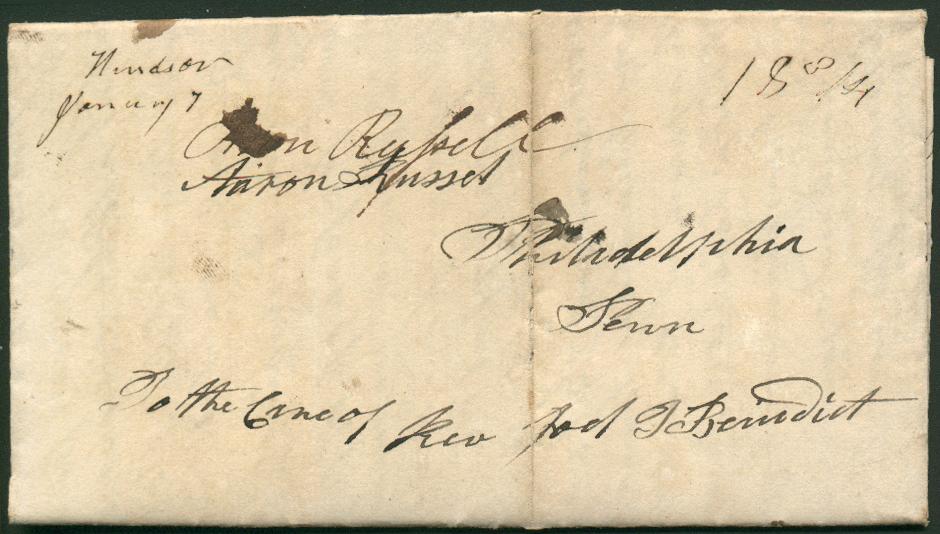 Windsor
January 7
18 3/4
Russell
Aaron Russel
Philadelphia
Penn
To the Care of Rev Joel T Benedict